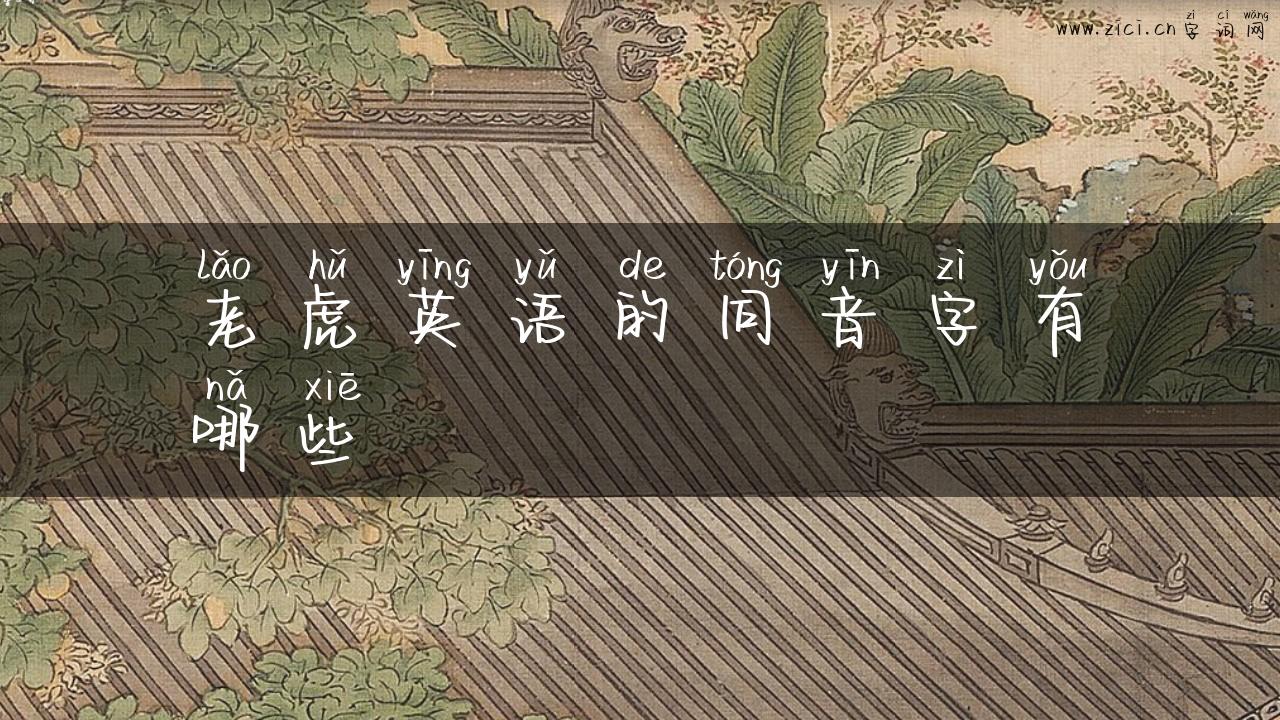 zì cí wǎng
www.zici.cn 字词网
lǎo hǔ yīng yǔ de tóng yīn zì yǒu
老虎英语的同音字有
nǎ xiē
哪些